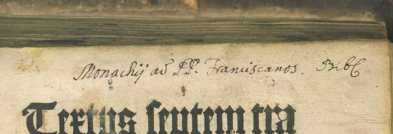 Monachij ad PP. Franciscanos. Bibl
Textus septem tra